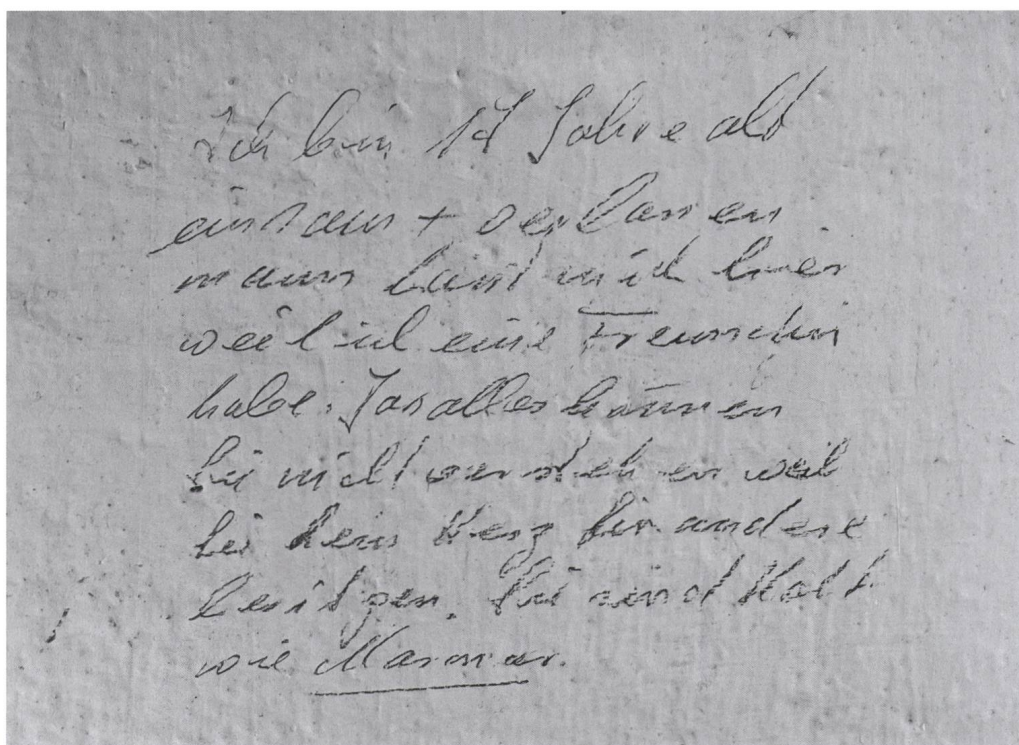 Ich bin 17 Jahre alt
einsam + verlassen
mann hasst mich hier
weil ich eine Freundin
habe. Das alles können
sie nicht verstehen weil
sie kein Herz für andere
besitzen. Sie sind Kalt
wie Marmor.